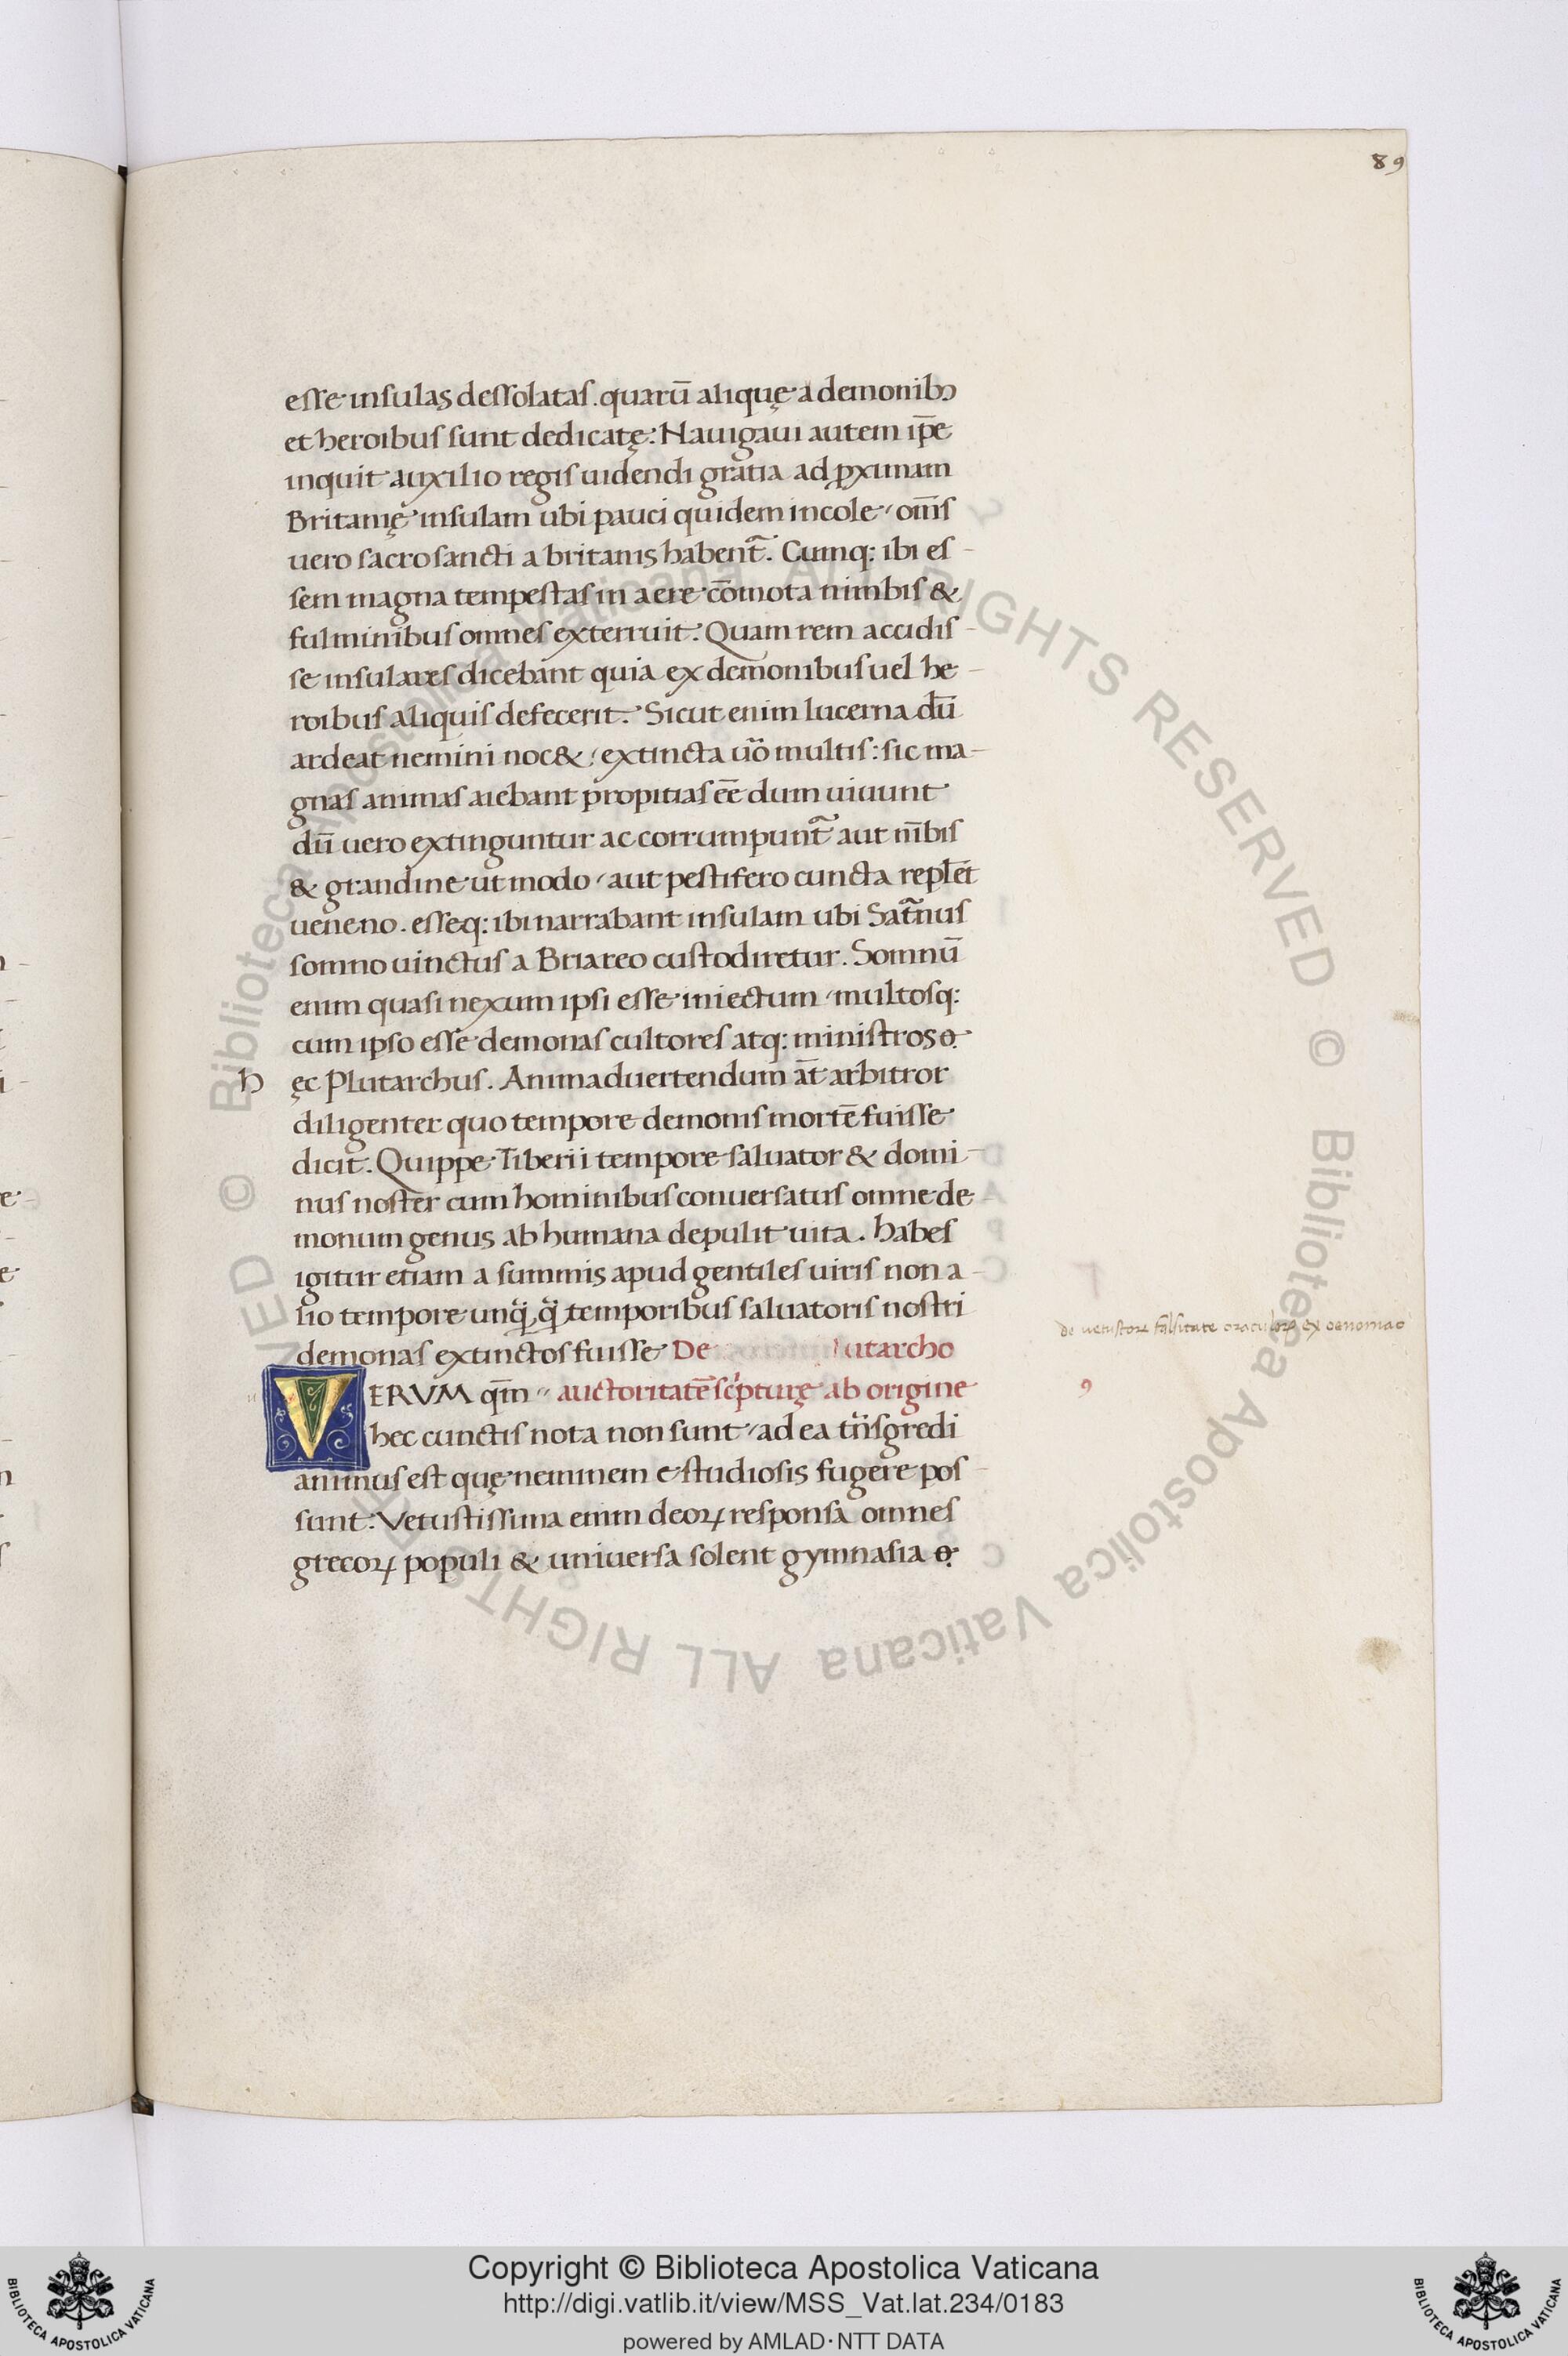 89
esse insulas dessolatas. quarū aliquę a demonibꝫ
et heroibus sunt dedicatę: Nauigaui autem ip̄e
inquit auxilio regis uidendi gratia ad ꝓximam
Britanię insulam ubi pauci quidem incole, om̄s
uero sacrosancti a britanis habent᷑. Cumq: ibi es-
sem magna tempestas in aere cōmota nimbis &
fulminibus omnes exterruit: Quam rem accidis-
se insulares dicebant quia ex demonibus uel he-
roibus aliquis defecerit: Sicut enim lucerna dū
ardeat nemini noc&, extincta ūo multis: sic ma-
gnas animas aiebant propitias eē dum uiuunt
dū uero extinguntur ac corrumpunt᷑ aut nībis
& grandine ut modo, aut pestifero cuncta replēt
ueneno. esseq: ibi narrabant insulam ubi Sat᷑nus
somno uinctus a Briareo custodiretur. Somnū
enim quasi nexum ipsi esse iniectum, multosq:
cum ipso esse demonas cultores atq: ministros
h ęc Plutarchus. Animaduertendum at̄ arbitror
diligenter quo tempore demonis mortē fuisse
dicit. Quippe Tiberii tempore saluator & domi-
nus noster cum hominibus conuersatus omne de
monum genus ab humana depulit uita. habes
igitur etiam a summis apud gentiles uiris non a-
lio tempore unq̄ q̄ temporibus saluatoris nostri
demonas extinctos fuisse De utarcho
de uetustorꝝ falsitate oraculorꝝ ex oenomao
VERVM qm̄ auctoritatē sc̓pturę ab origine
9
hec cunctis nota non sunt, ad ea trāsgredi
animus est quę neminem e studiosis fugere pos-
sunt: Vetustissima enim deoꝝ responsa omnes
grecoꝝ populi & uniuersa solent gymnasia
Copyright © Biblioteca Apostolica Vaticana
http://digi.vatlib.it/view/MSS_Vat.lat.234/0183
powered by AMLAD·NTT DATA
BIBLIOTECA APOSTOLICA VATICANA
BIBLIOTECA APOSTOLICA VATICANA
© Biblioteca Apostolica Vaticana ALL RIGHTS RESERVED © Biblioteca Apostolica Vaticana ALL RIGHTS